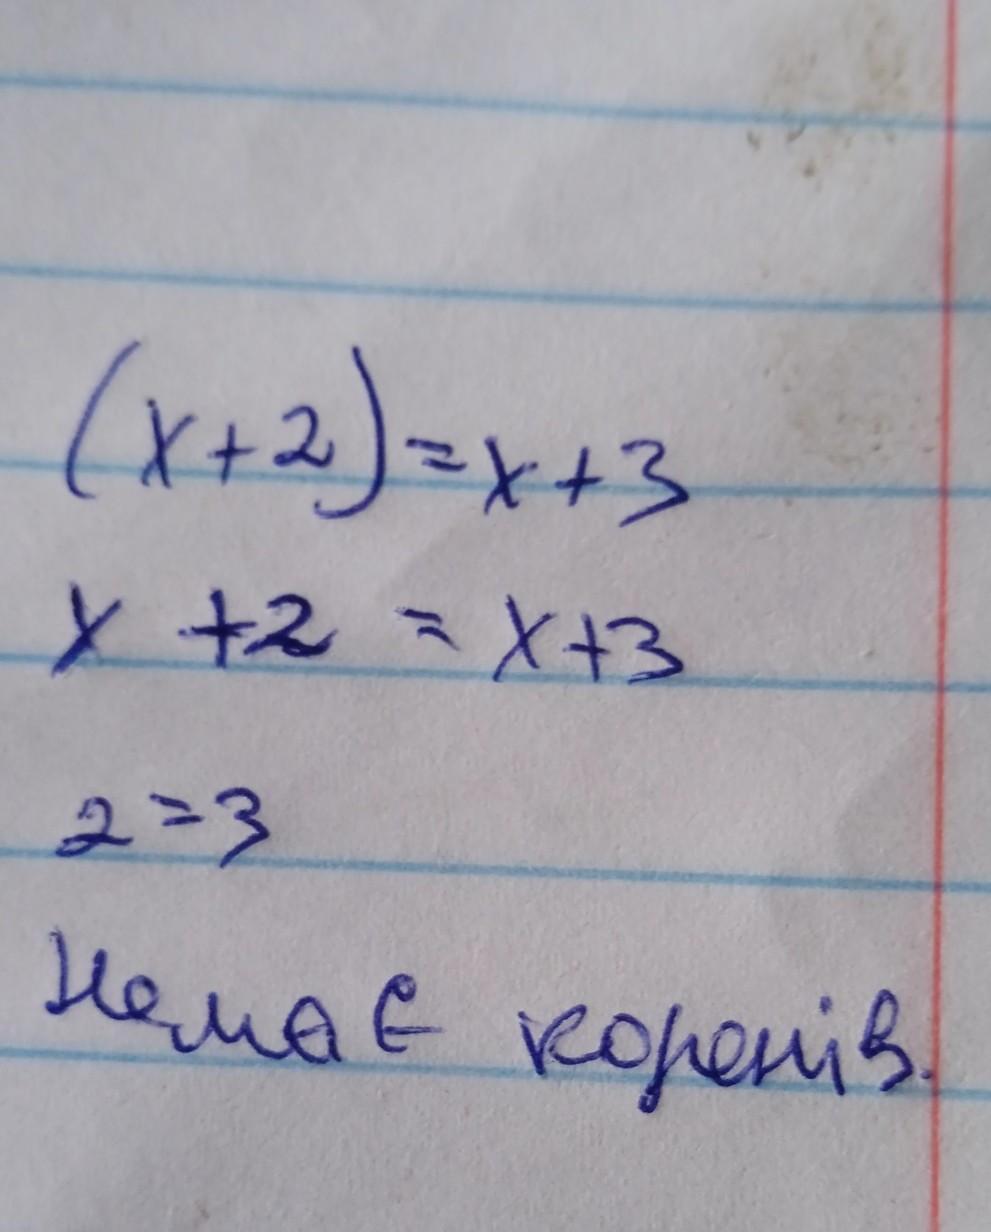 (x+2)=x+3
x +2 = x+3
2=3
Немає коренів.